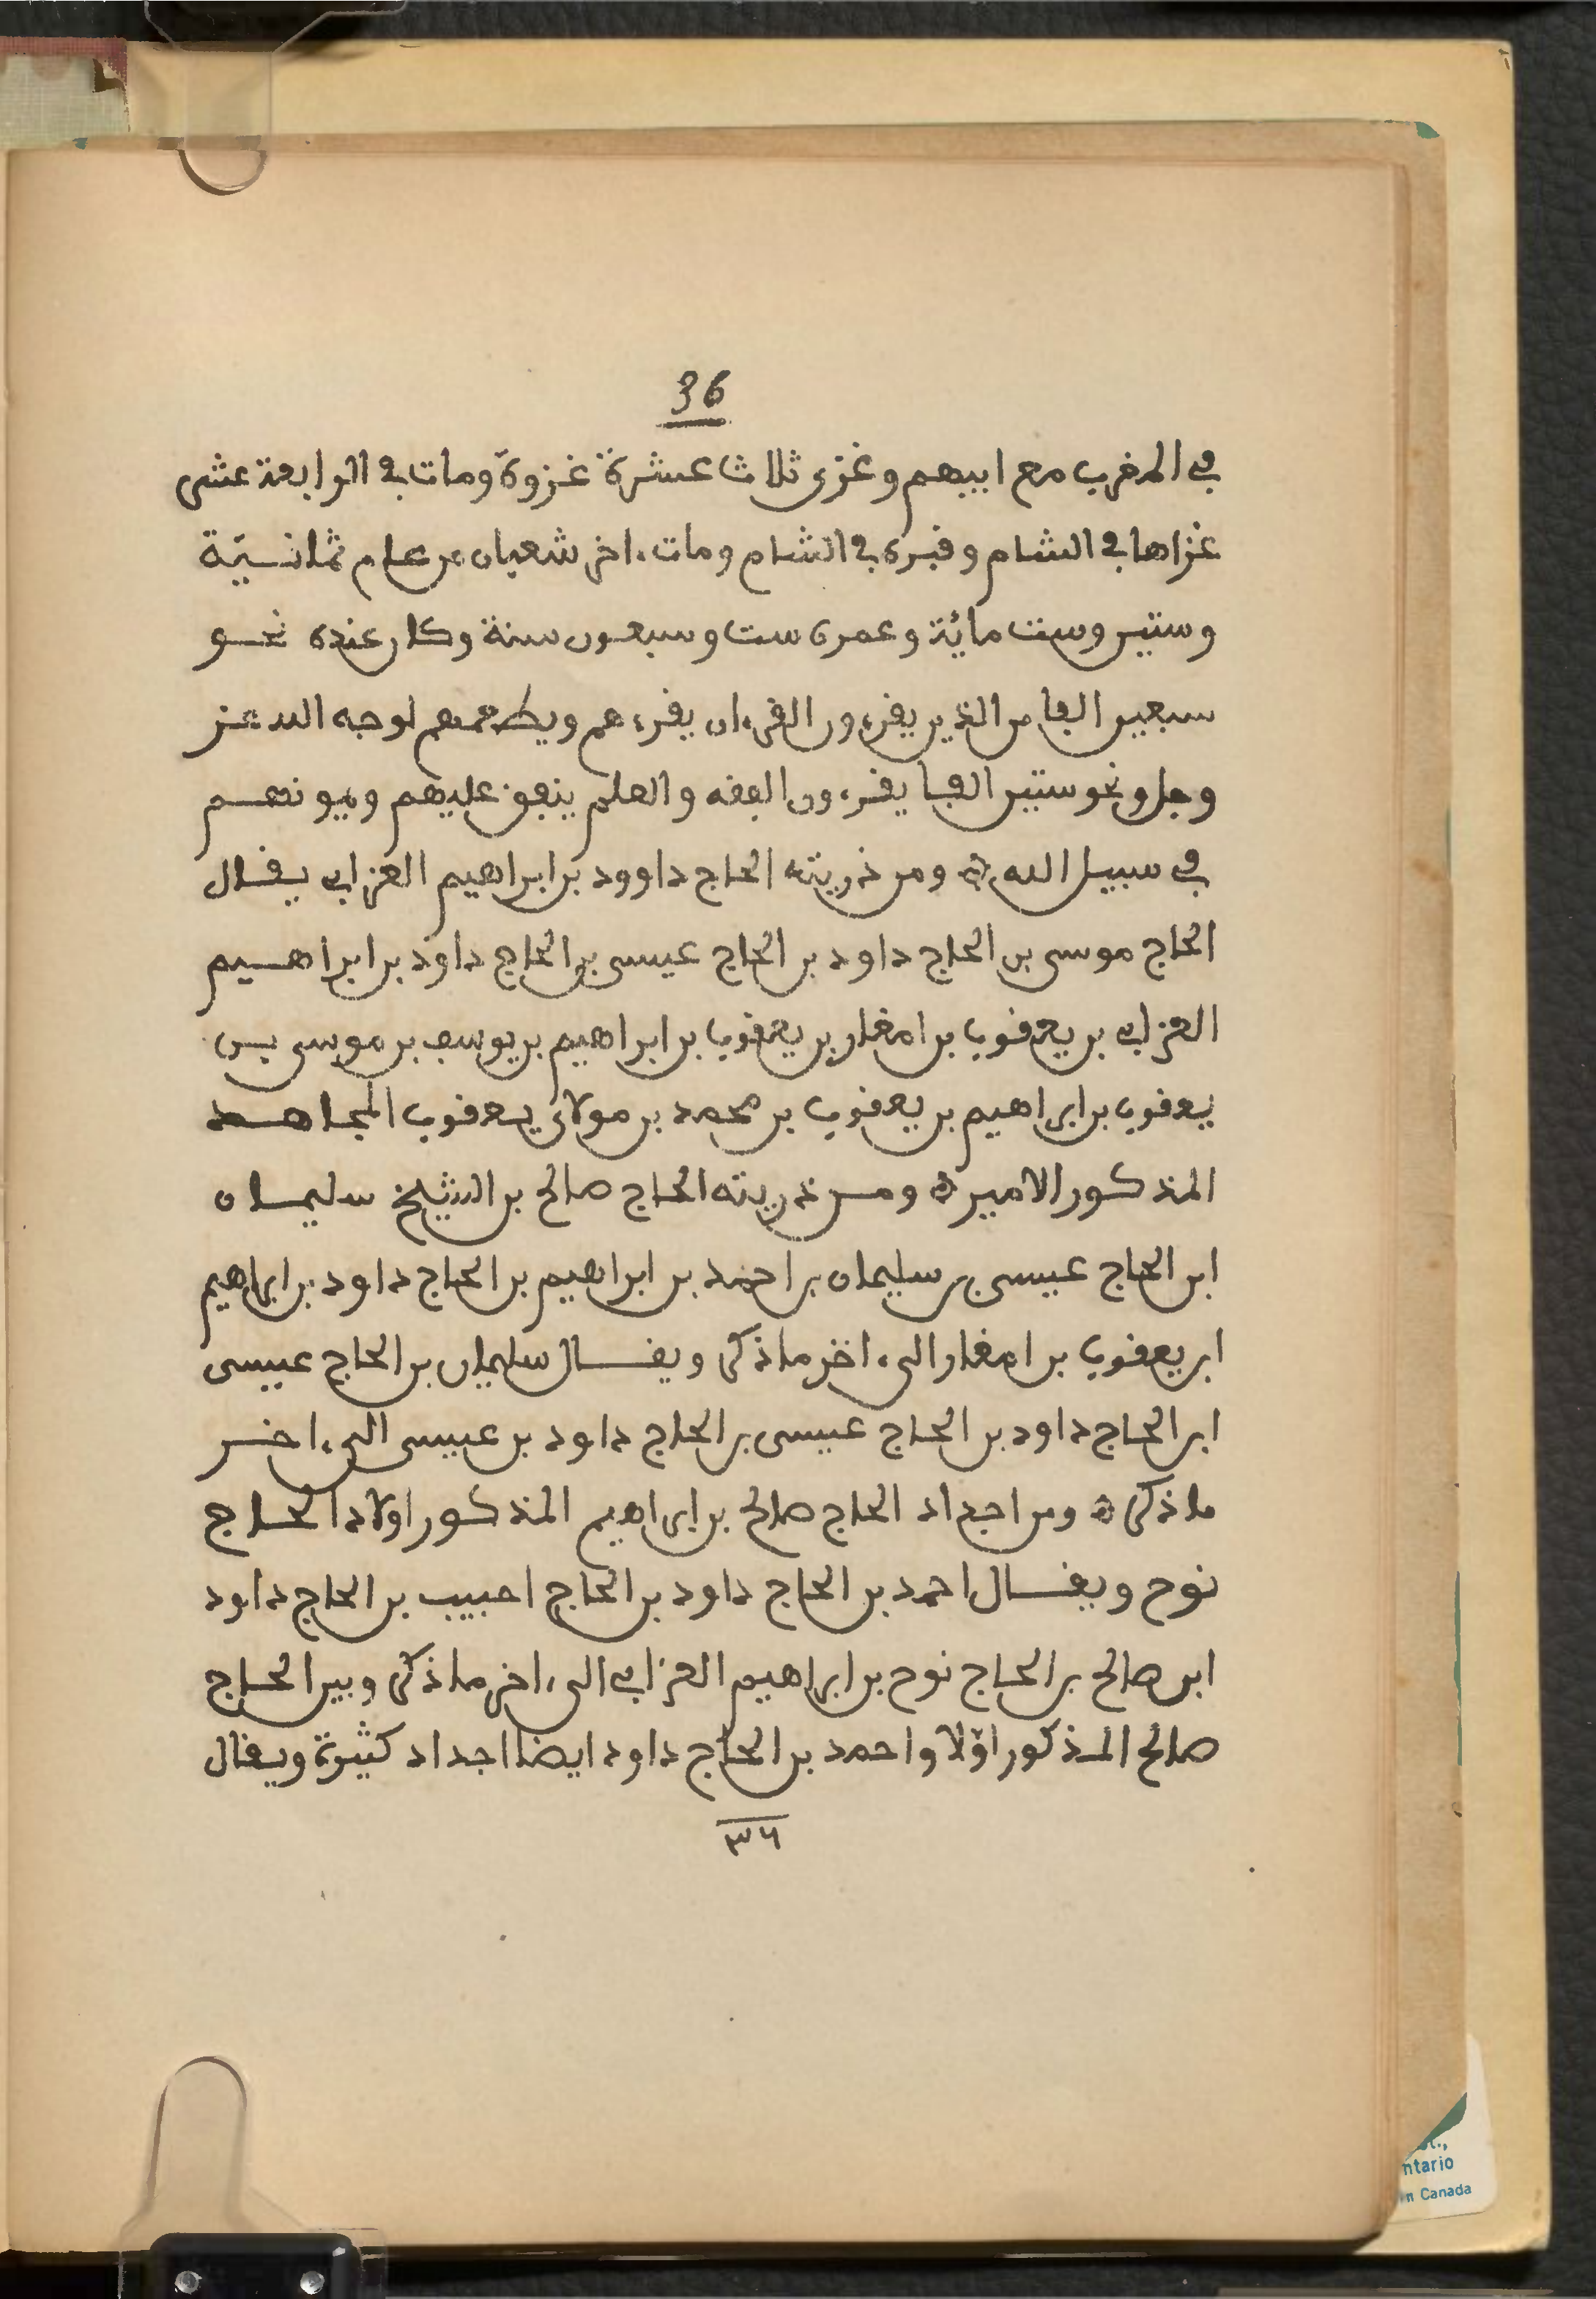 36
في المغرب مع ابيهم وغزى ثلاث عشرة غزوة ومات في الرابعة عشر
غزاها في الشام وقبره في الشام ومات ءاخر شعبان من عام ثمانية
وستين وست مائة وعمره ست وسبعون سنة وكان عنده نحو
سبعين الفا من الذين يقرءون القرءان يقرءهم ويطعمهم لوجه الله عز
وجل ونحو ستين الفا يقرءون الفقه والعلم ينفق عليهم ويمونهم
في سبيل الله ه ومن ذريته الحاج داوود بن ابراهيم العزابي يقال
الحاج موسى بن الحاج داود بن الحاج عيسى بن الحاج داود بن ابراهيم
العزابي بن يعقوب بن امغار بن يعقوب بن ابراهيم بن يوسف بن موسى بن
يعقوب بن ابراهيم بن يعقوب بن محمد بن مولاي يعقوب المجاهد
المذكور الامير ه ومن ذريته الحاج صالح بن الشيخ سليمان
ابن الحاج عيسى بن سليمان بن احمد بن ابراهيم بن الحاج داود بن ابراهيم
ابن يعقوب بن امغار الى ءاخر ما ذكر ويقال سليمان بن الحاج عيسى
ابن الحاج داود بن الحاج عيسى بن الحاج داود بن عيسى الى ءاخر
ما ذكر ه ومن اجداد الحاج صالح بن ابراهيم المذكور اولاد الحاج
نوح ويقال احمد بن الحاج داود بن الحاج احبيب بن الحاج داود
ابن صالح بن الحاج نوح بن ابراهيم العزابي الى ءاخر ما ذكر وبين الحاج
صالح المذكور اوّلا واحمد بن الحاج داود ايضا اجداد كثيرة ويقال
٣٦
ntario
n Canada